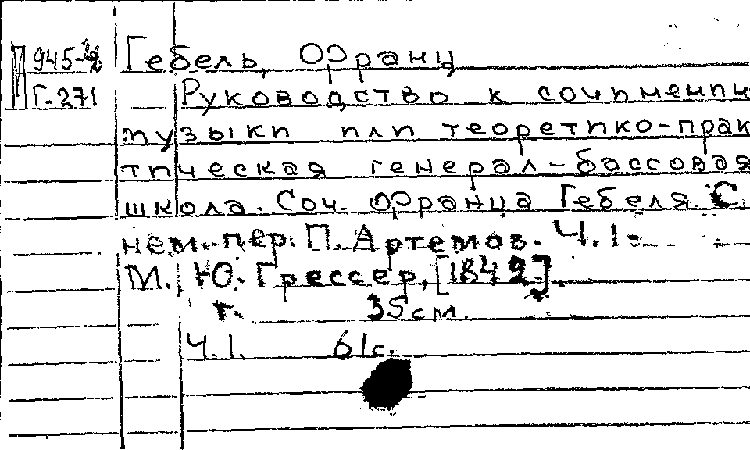 П 945-12 Гебель, Франц
Г-271 Руководство к сочинени
музыки или теоретико-прак
тическая генерал-бассовая
школа. Соч. Франца Гебеля. С
нем. пер. П. Артемов. Ч. 1.
М. Ю. Грессер, [1842].
г. 35см.
Ч. 1. 61с.